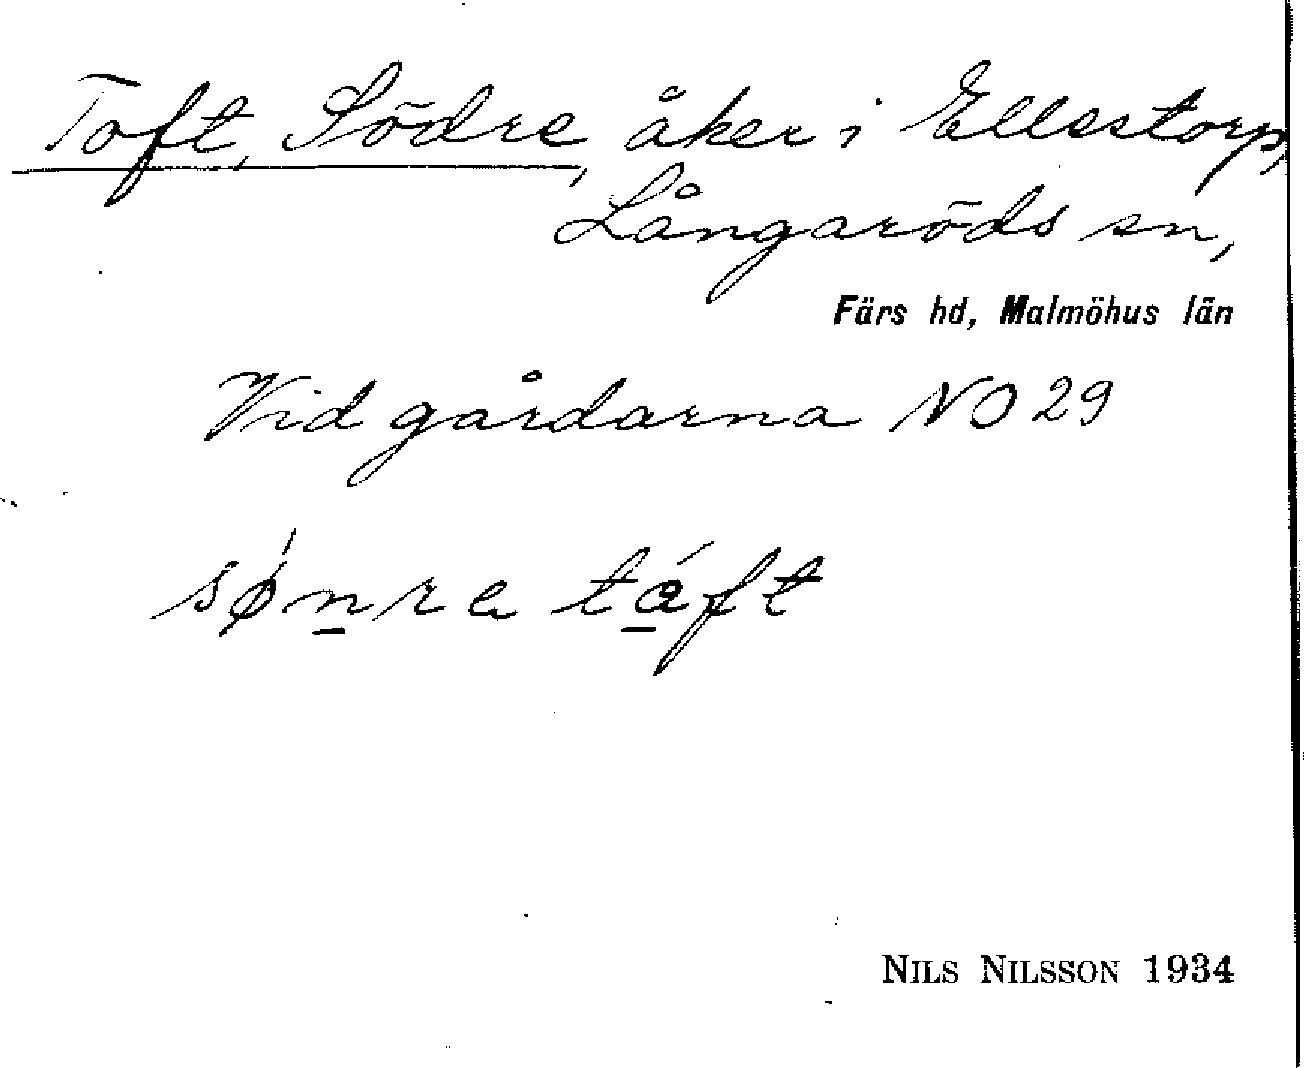 Toft, Södre, åker i Ellestorp,
Långaröds sn,
Färs hd, Malmöhus län
Vid gårdarna NO 29
sǿn̲ra tá̲ft
NILS NILSSON 1934